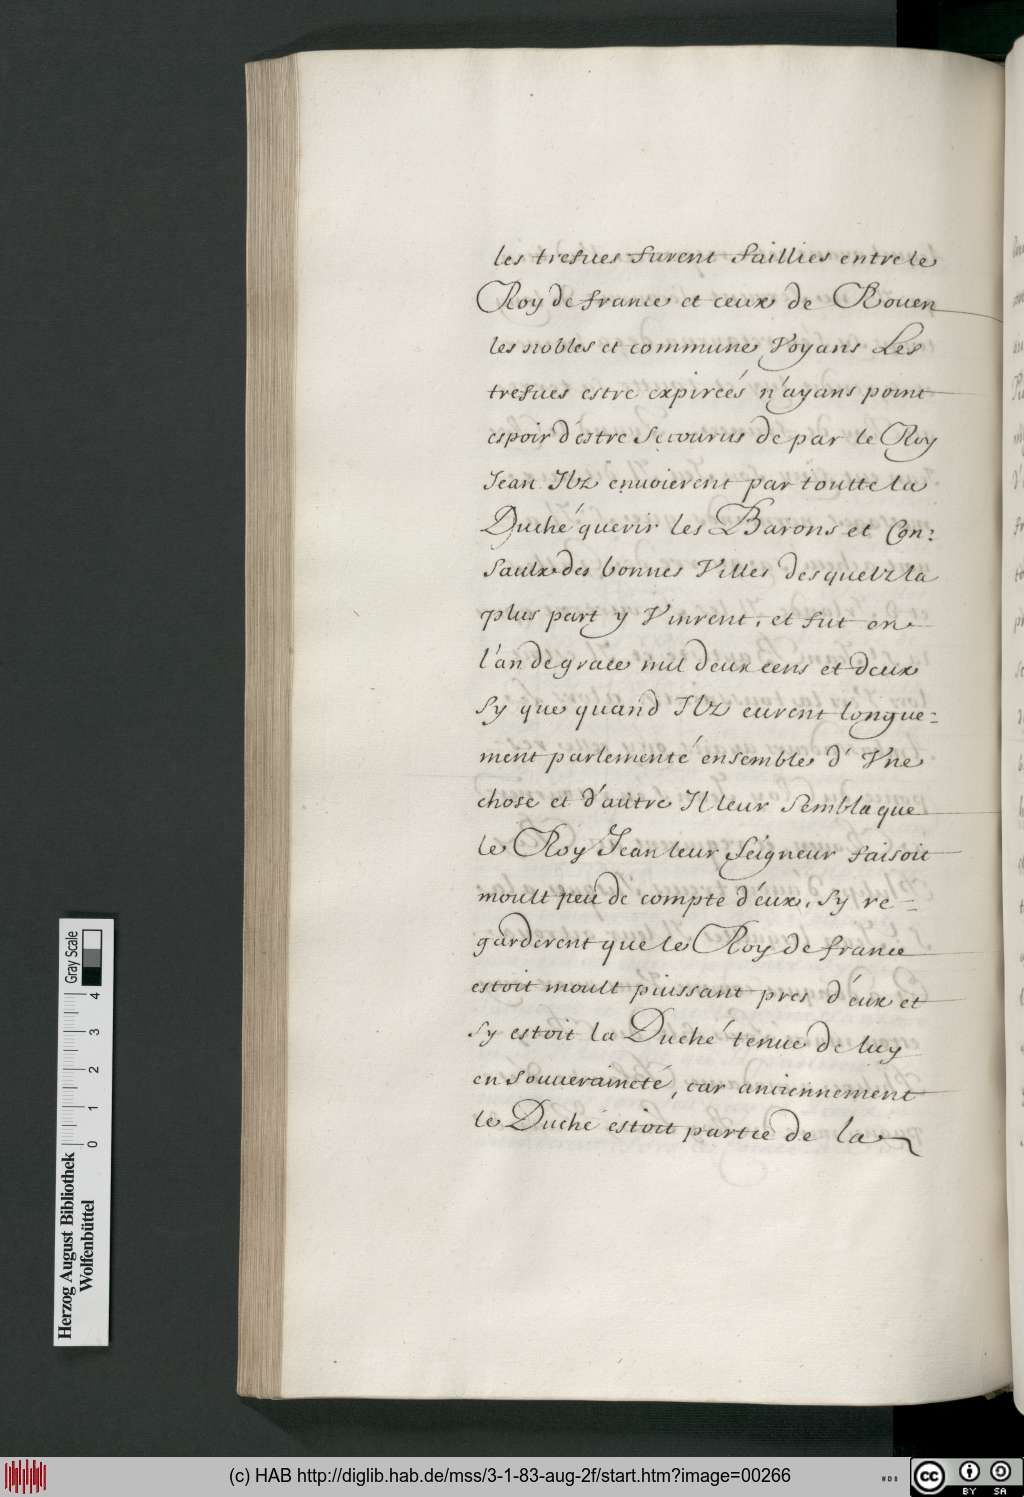 les tresues furent faillies entre le
Roy de france et ceux de Rouen
les nobles et commune Voyans Les
tresues estre expireés n'ayans point
espoir destre secourus de par le Roy
Jean Ilz enuoierent par toutte la
Duché querir les Barons et Con=
saulx des bonnes Villes desquelz la
plus part y Vinrent, et fut en
l'an de grace mil deux cens et deux
sy que quand Ilz eurent longue=
ment parlementé ensemble d'Vne
chose et d'autre Il leur sembla que
le Roy Jean leur Seigneur faisoit
moult peu de compte d'eux, sy re=
garderent que le Roy de france
estoit moult puissant pres d'eux et
sy estoit la Duché tenue de luy
en souueraineté, car anciennement
le Duché estoit partie de la
Herzog August Bibliothek
Wolfenbüttel
0 1 2 3 4
Gray Scale
(c) HAB http://diglib.hab.de/mss/3-1-83-aug-2f/start.htm?image=00266
WDB
cc
BY SA